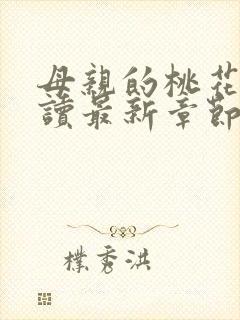 母親的桃花
讀最新章節
樸秀洪